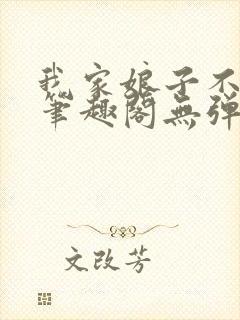 我家娘子不
笔趣阁无弹
文改芳